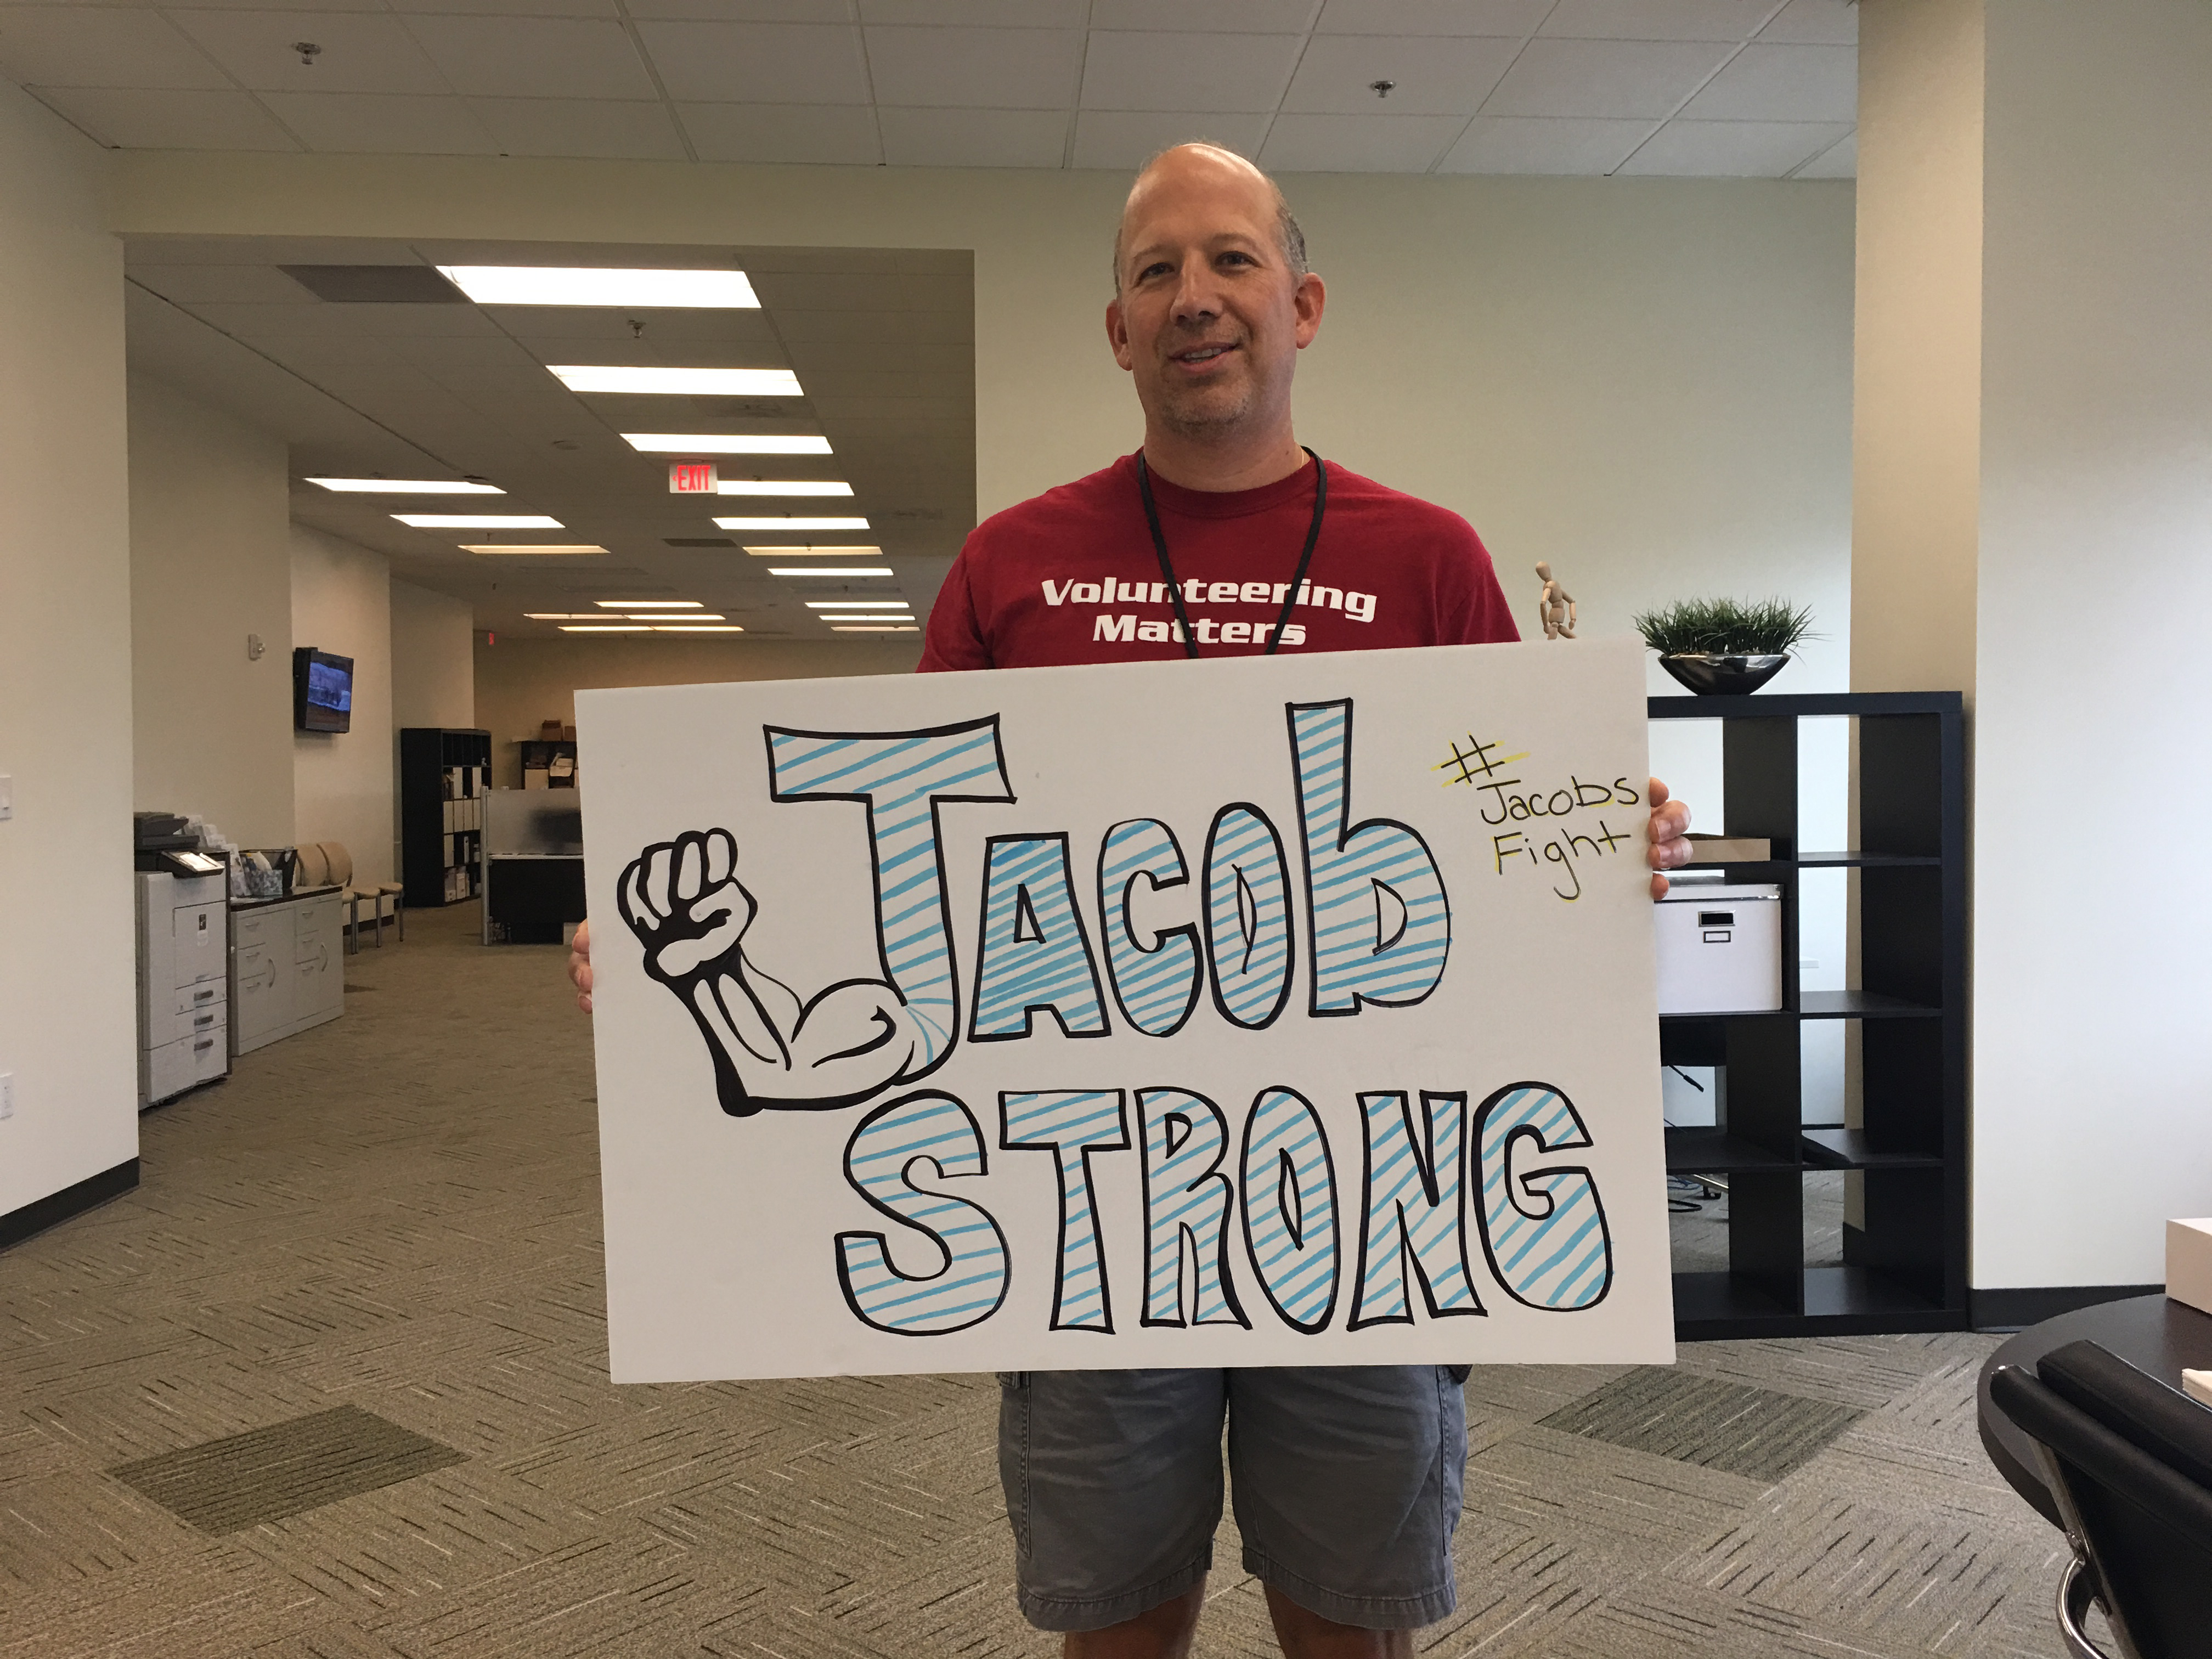 EXIT
Volunteering
Matters
JACOb
STRONG
#
Jacobs
Fight